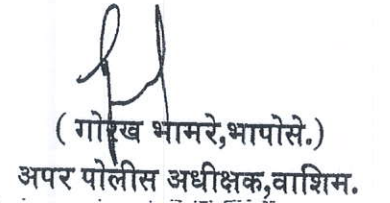 ( गोरख भामरे,भापोसे.)
अपर पोलीस अधीक्षक,वाशिम.